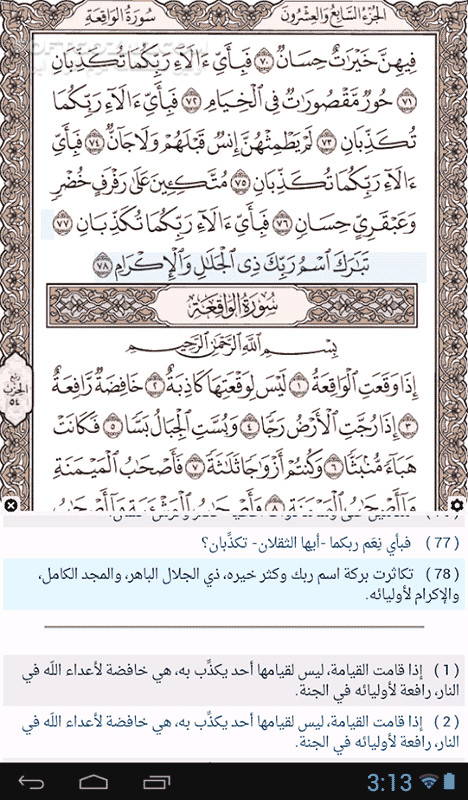 الجزء السابع والعشرون
سورة الواقعة
فِيهِنَّ خَيْرَٰتٌ حِسَانٌ ۝٧٠ فَبِأَىِّ ءَالَآءِ رَبِّكُمَا تُكَذِّبَانِ
۝٧١ حُورٌ مَّقْصُورَٰتٌ فِى ٱلْخِيَامِ ۝٧٢ فَبِأَىِّ ءَالَآءِ رَبِّكُمَا
تُكَذِّبَانِ ۝٧٣ لَمْ يَطْمِثْهُنَّ إِنسٌ قَبْلَهُمْ وَلَا جَآنٌّ ۝٧٤ فَبِأَىِّ
ءَالَآءِ رَبِّكُمَا تُكَذِّبَانِ ۝٧٥ مُتَّكِـِٔينَ عَلَىٰ رَفْرَفٍ خُضْرٍ
وَعَبْقَرِىٍّ حِسَانٍ ۝٧٦ فَبِأَىِّ ءَالَآءِ رَبِّكُمَا تُكَذِّبَانِ ۝٧٧
تَبَٰرَكَ ٱسْمُ رَبِّكَ ذِى ٱلْجَلَٰلِ وَٱلْإِكْرَامِ ۝٧٨
سُورَةُ الوَاقِعَةِ
بِسْمِ ٱللَّهِ ٱلرَّحْمَٰنِ ٱلرَّحِيمِ
إِذَا وَقَعَتِ ٱلْوَاقِعَةُ ۝١ لَيْسَ لِوَقْعَتِهَا كَاذِبَةٌ ۝٢ خَافِضَةٌ رَّافِعَةٌ
۝٣ إِذَا رُجَّتِ ٱلْأَرْضُ رَجًّا ۝٤ وَبُسَّتِ ٱلْجِبَالُ بَسًّا ۝٥ فَكَانَتْ
هَبَآءً مُّنۢبَثًّا ۝٦ وَكُنتُمْ أَزْوَٰجًا ثَلَٰثَةً ۝٧ فَأَصْحَٰبُ ٱلْمَيْمَنَةِ
مَآ أَصْحَٰبُ ٱلْمَيْمَنَةِ ۝٨ وَأَصْحَٰبُ ٱلْمَشْـَٔمَةِ مَآ أَصْحَٰبُ
ربع
الحزب
٥٤
(77) فبأي نِعَم ربكما -أيها الثقلان- تكذِّبان؟
(78) تكاثرت بركة اسم ربك وكثر خيره، ذي الجلال الباهر، والمجد الكامل،
والإكرام لأوليائه.
(1) إذا قامت القيامة، ليس لقيامها أحد يكذِّب به، هي خافضة لأعداء الله في
النار، رافعة لأوليائه في الجنة.
(2) إذا قامت القيامة، ليس لقيامها أحد يكذِّب به، هي خافضة لأعداء الله في
النار، رافعة لأوليائه في الجنة.
3:13